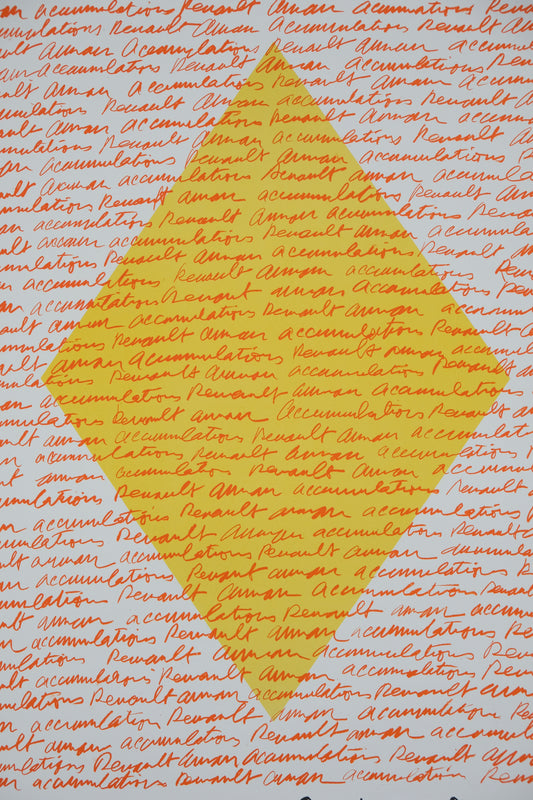 accumulations Renault Arman accumulations Ren
mulations Renault Arman accumulations Renault
an accumulations Renault Arman accumul
ault Arman Accumulations Renault Arman accumulations Ren
mulations Renault Arman accumulations Renault A
ault Arman accumulations Renault Arman accumul
an accumulations Renault Arman accumulations Ren
ault Arman accumulations Renault Arman accumula
mulations Renault Arman accumulations Renault Arm
an accumulations Renault Arman accumulations Renau
ult Arman accumulations Renault Arman accumulat
mulations Renault Arman accumulations Renault
an accumulations Renault Arman accumulations Ren
an accumulations Renault Arman accumulations Ren
ault arman accumulations Renault Arman accumu
mulations Renault Arman accumulations Renault A
ult Arman Accumulations Renault Arman accumulat
mulations Renault Arman accumulations Renault
an accumulations Renault Arman Accumulations
mulations Renault arman Accumulations Renault
ult arman accumulations Renault Arman accumulat
an accumulations Renault Arman accumulations Re
t arman accumulations Renault Arman accumu
mulations Renault Arman accumulations Renault
an accumulations Renault Arman accumulations Ren
mulations Renault Arman accumulations Renault
ult arman accumulations Renault Arman accumula
an accumulations Renault arman accumulations R
mulations Renault Arman Accumulations Renault
ult arman accumulations Renault arman accumu
an accumulations Renault arman accumulations Re
mulations Renault arman accumulations Renault
ult accumulations Renault Arman accumulations Ren
mulations Renault arman accumulations Renault arm
an accumulations Renault arman accumulations Re
ult arman accumulations Renault arman accumulat
mulations Renault Arman Accumulations Renault arman
an accumulations Renault arman accumulations Rena